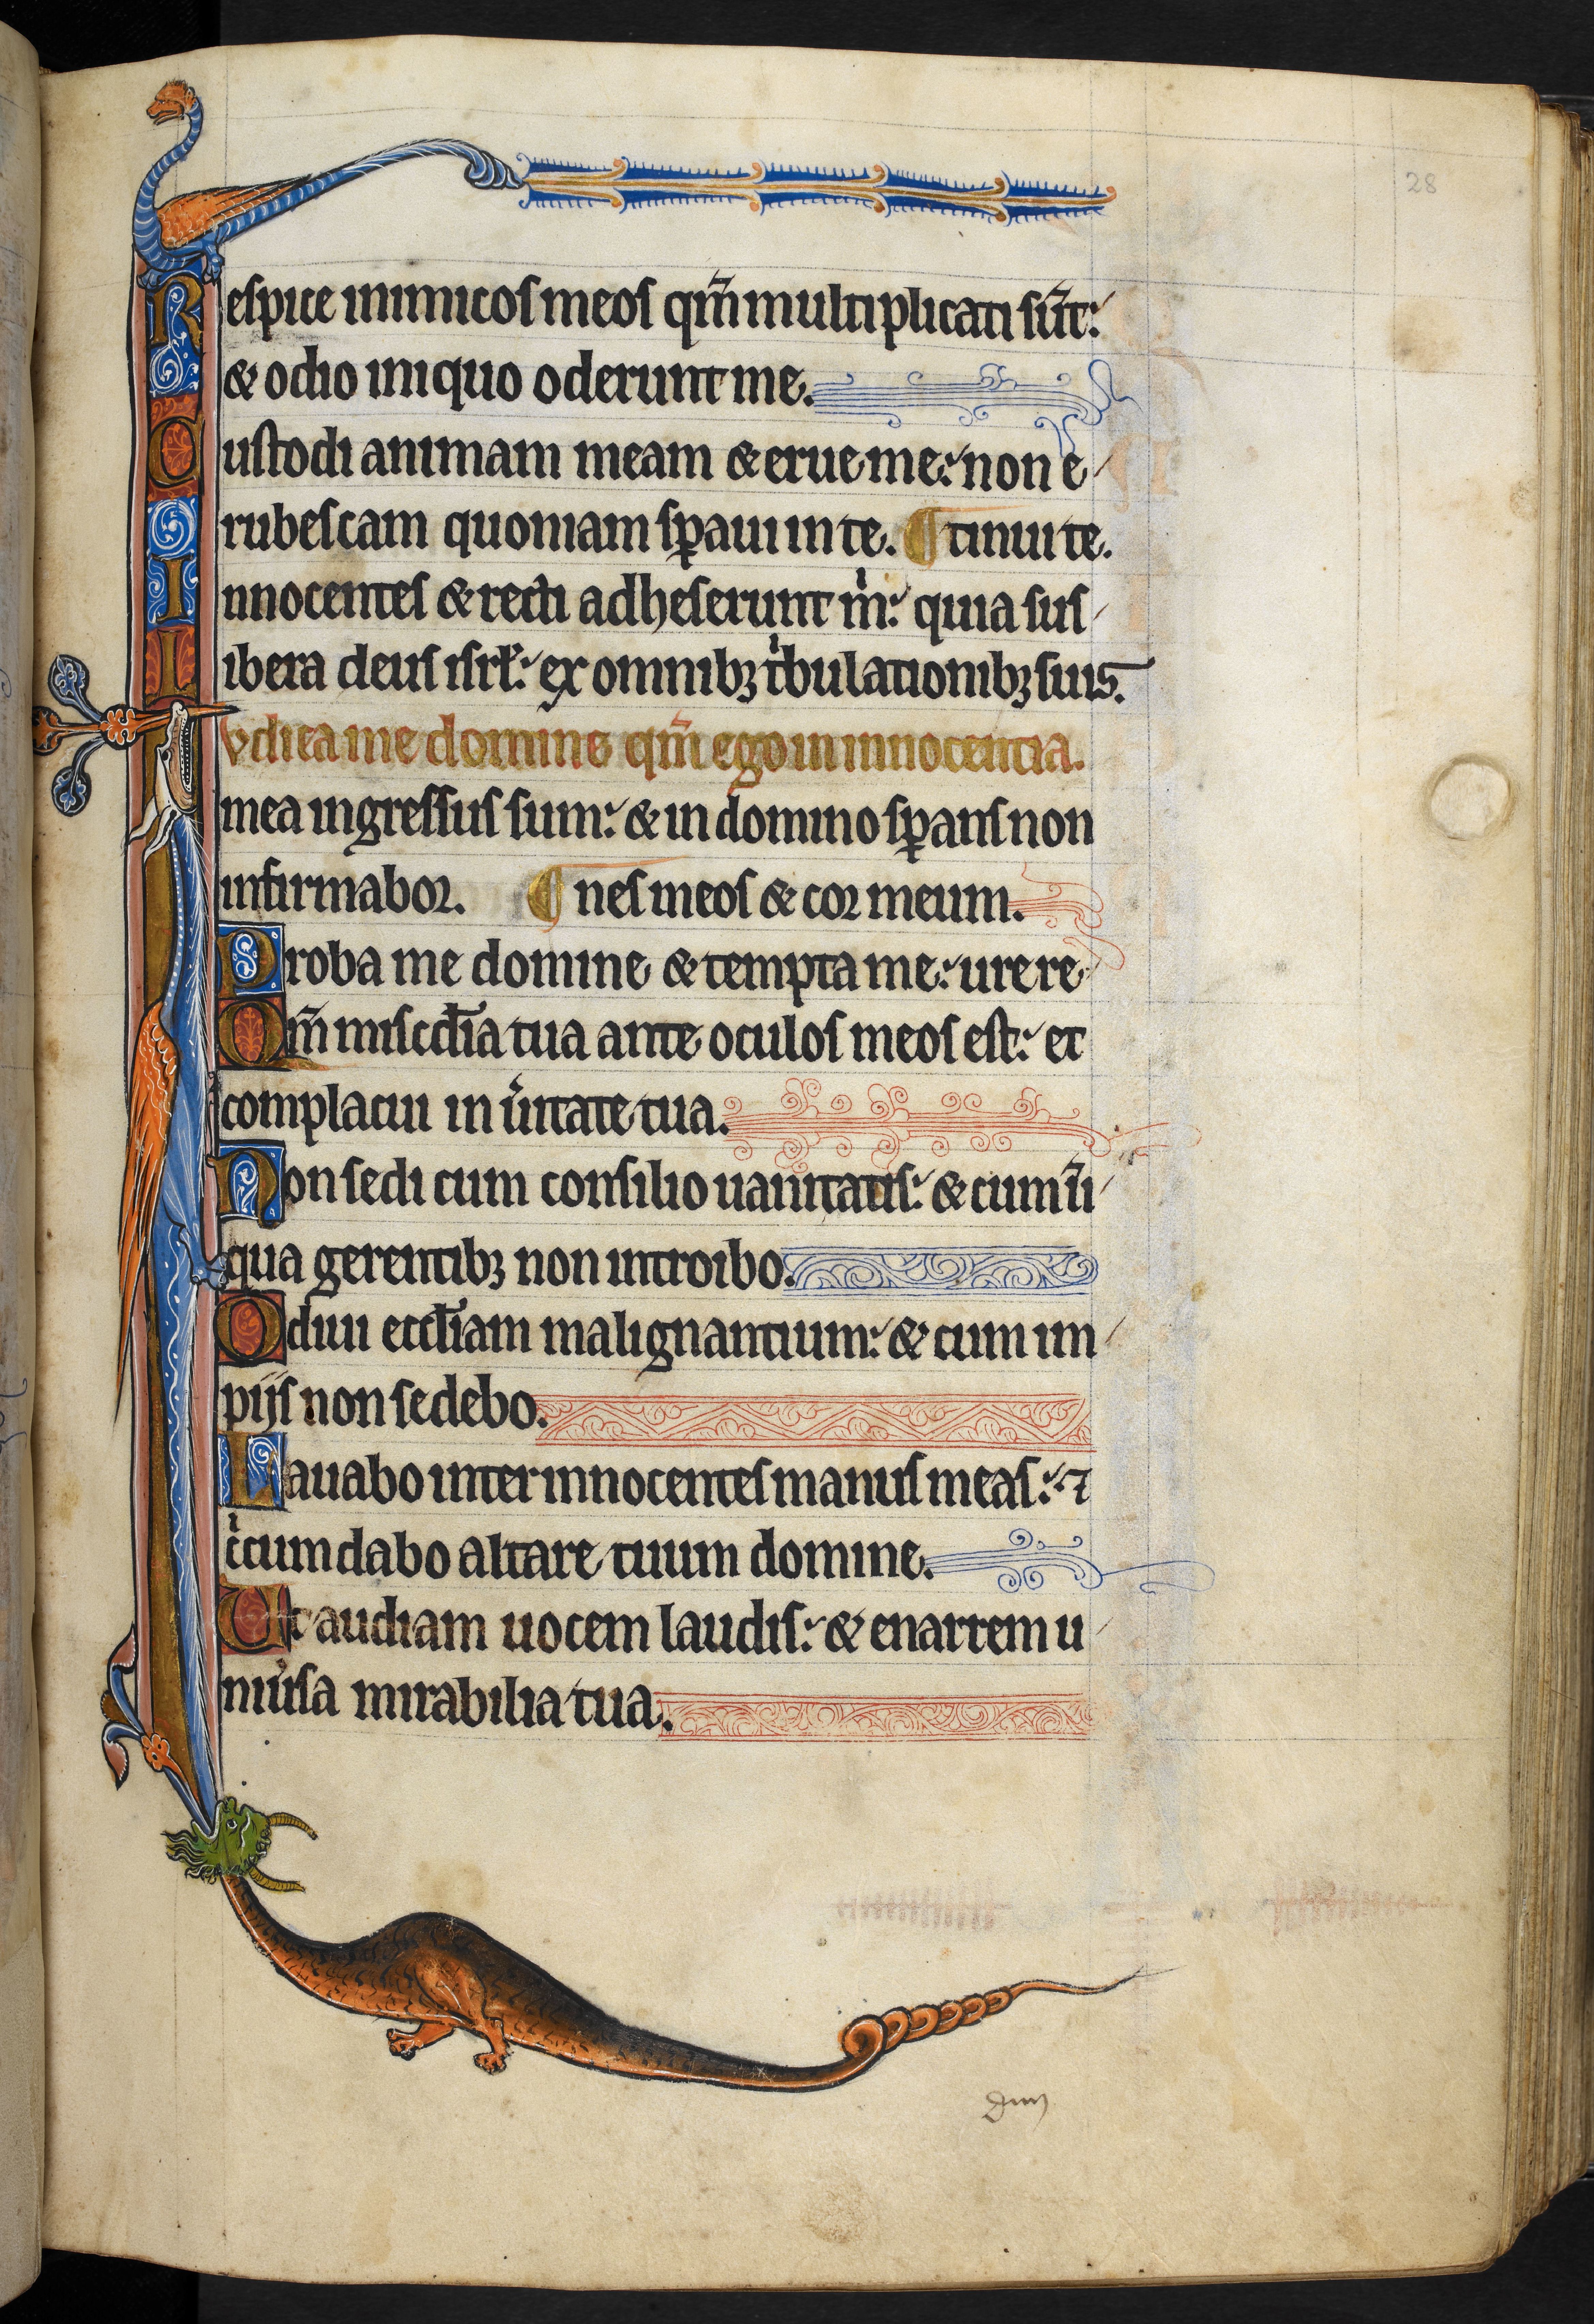 28
Respice inimicos meos qm̄ multiplicati sūt:
& odio iniquo oderunt me.
Custodi animam meam & erue me: non e
rubescam quoniam sꝑaui in te. ¶ tinui te.
Innocentes & recti adheserunt m̍: quia sus
Libera deus isrł: ex omnibꝫ t̍bulationibꝫ suis.
Iudica me domine qm̄ ego in innocentia.
mea ingressus sum: & in domino sꝑans non
infirmabor. ¶ nes meos & cor meum.
Proba me domine & tempta me: ure re
Qm̄ miscdīa tua ante oculos meos est: et
complacui in u̍itate tua.
Non sedi cum consilio uanitatis: & cum īi
qua gerentibꝫ non introibo.
Odiui eccłiam malignantium: & cum im
pijs non sedebo.
Lauabo inter innocentes manus meas: ⁊
c̍cumdabo altare tuum domine.
Ut audiam uocem laudis: & enarrem u
niu̍sa mirabilia tua.